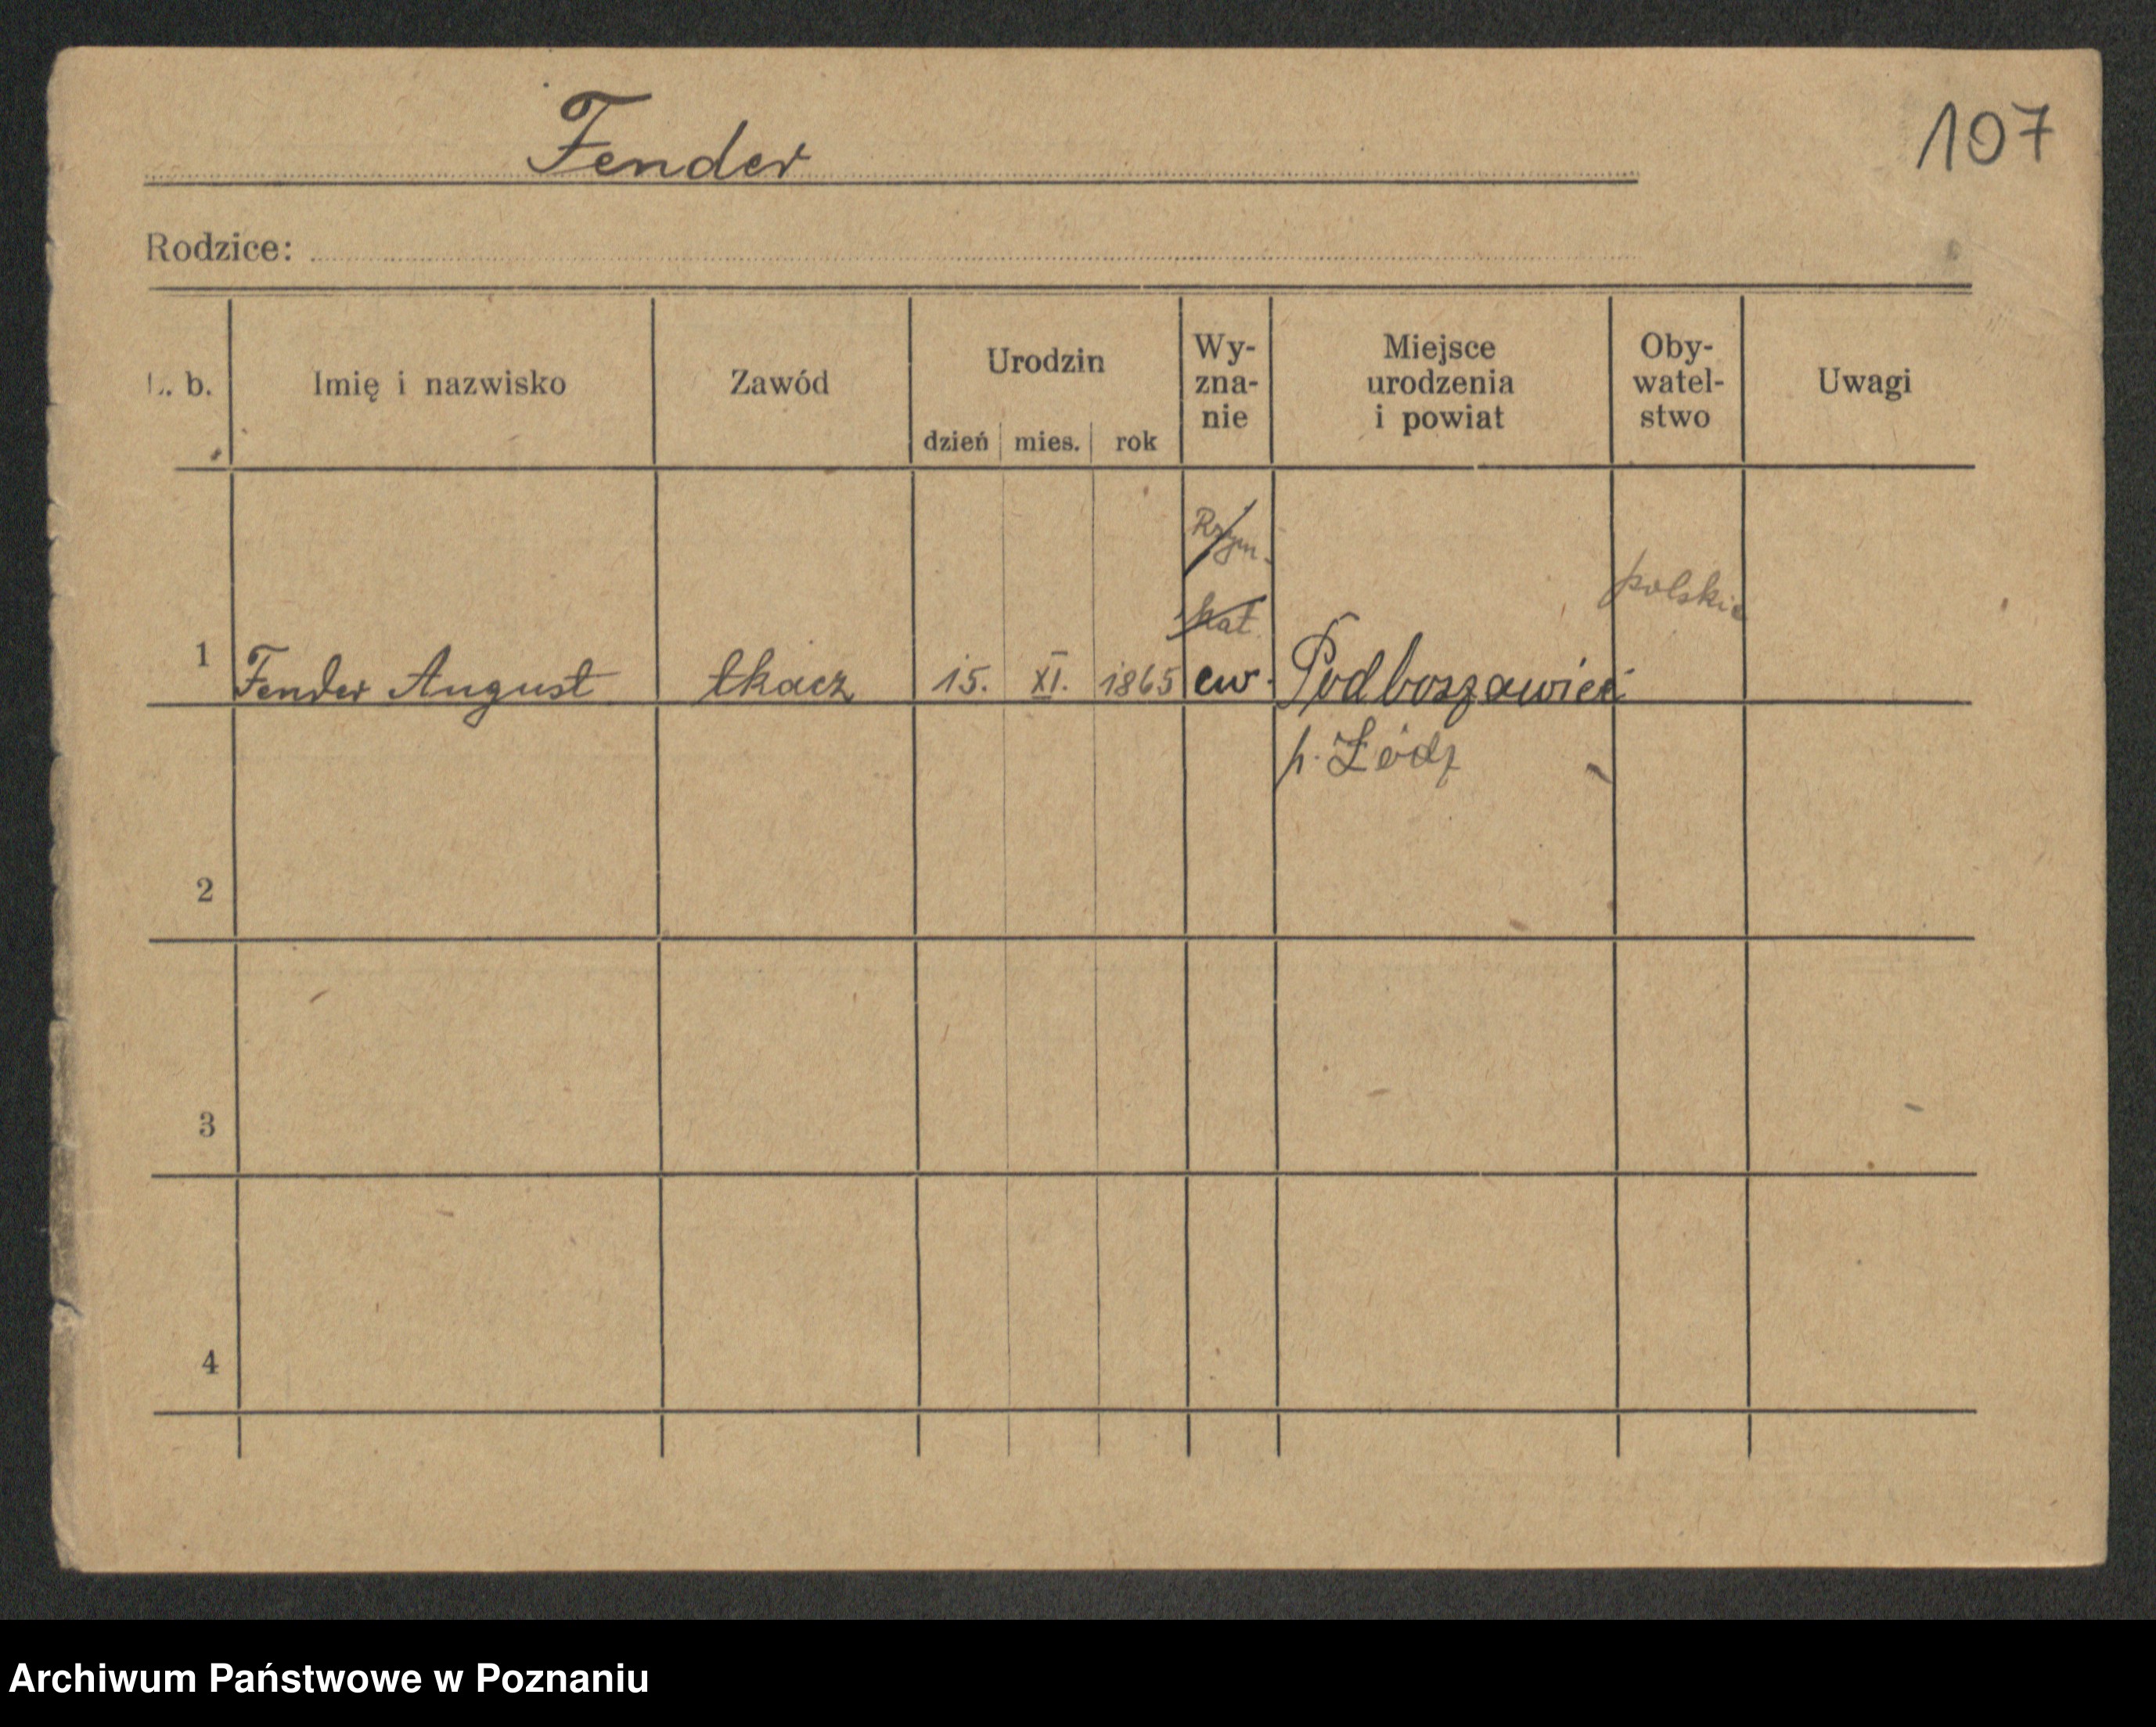 Fender
107
Rodzice:
L. b.
Imię i nazwisko
Zawód
Urodzin
dzień mies. rok
Wy-
zna-
nie
Miejsce
urodzenia
i powiat
Oby-
watel-
stwo
Uwagi
Rzym.
kat.
polskie
1 Fender August tkacz 15. XI. 1865 ew.
p. Łódź
2
3
4
Archiwum Państwowe w Poznaniu